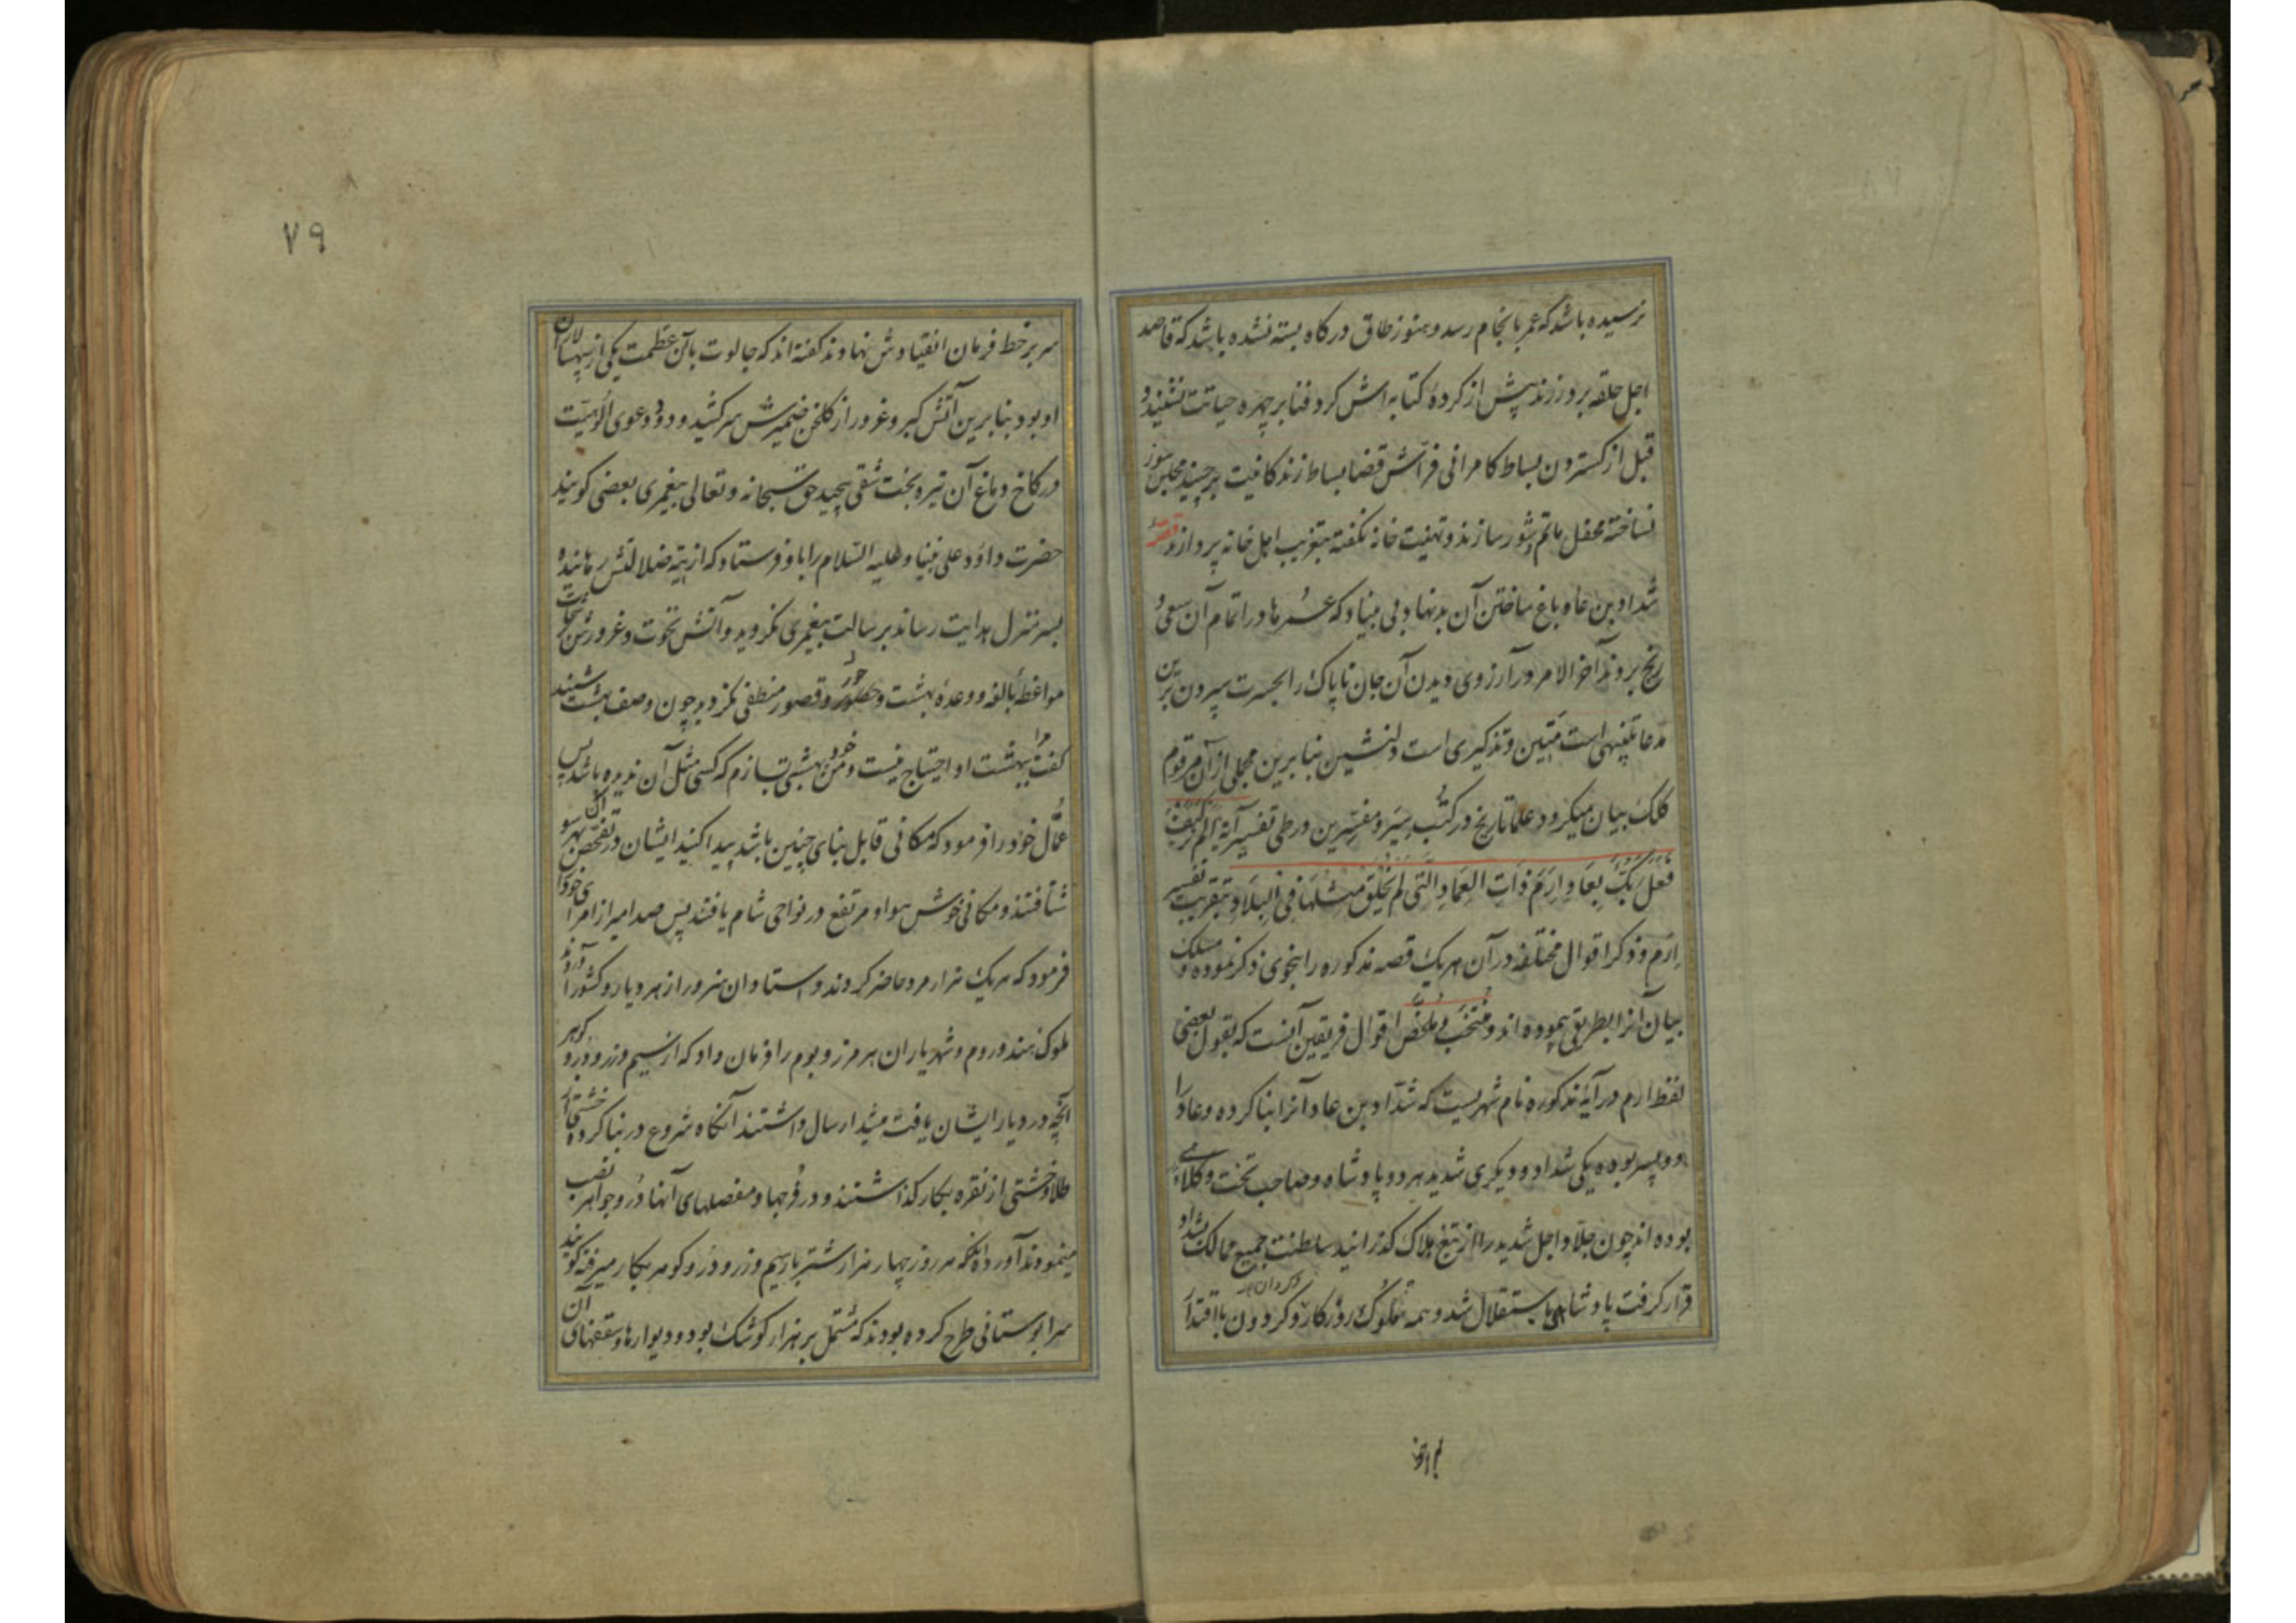 نرسیده باشد که عمر بانجام رسد و هنوز طاق درکاه بسته نشده باشد که قاصد
اجل حلقه بر در زند پیش از کردهٔ کتابه اش کرد فنا بر چهره حیاتت نشیند و
قبل از کستردن بساط کامرانی فراش قضا بساط زندکانیت برچیند مجلس سور
نساخته محفل ماتم و شور سازند و تهنیت خانه نکفته بتعزیت اهل خانه پردازند قصهٔ
شداد بن عاد و باغ ساختن آن بدنهاد بی بنیاد که عمرها در اتمام آن سعی و
رنج بردند آخر الامر در آرزوی دیدن آن جان ناپاک را بحسرت سپردن برین
مدعا تنبیهی است متین و تذکیری است دلنشین بنابرین مجملی از آن مرقوم
کلک بیان میکردد علما تاریخ در کتب سیر و مفسرین در طی تفسیر آیه الم تر کیف
فعل ربک بعاد ارم ذات العماد التی لم یخلق مثلها فی البلاد و بتقریب تفسیر
ارم و ذکر اقوال مختلفه در آن هر یک قصه مذکوره را بنحوی ذکر نموده و مسلک
بیان آنرا بطریقی پیموده اند و منتخب و ملخص اقوال فریقین آنست که بقول بعضی
لفظ ارم در آیهٔ مذکوره نام شهریست که شداد بن عاد آنرا بنا کرده و عاد را
دو پسر بوده یکی شداد و دیکری شدید هر دو پادشاه و صاحب تخت و کلاه
بوده اند چون جلاد اجل شدید را از تیغ هلاک کذرانید سلطنت جمیع ممالک بشداد
قرار کرفت پادشاهی باستقلال شد و همه ملوک روزکار و کردون با اقتدار
۷۹
سر بر خط فرمان انقیادش نهادند کفته اند که جالوت بآن عظمت یکی از سپهسالاران
او بود بنابرین آتش کبر و غرور از کلخن ضمیرش سر کشید و دود دعوی الوهیت
در کاخ دماغ آن تیره بخت شقی پیچید حق سبحانه و تعالی پیغمبری بعضی کویند
حضرت داود علی نبینا و علیه السلام را باو فرستاد که از تیه ضلالتش رهانیده
بسر منزل هدایت رساند برسالت پیغمبری نکروید و آتش نخوت و غرورش برشحات
مواعظ بالغه و وعده بهشت و حور و قصور منطفی نکردید چون وصف بهشت شنید
کفت مرا ببهشت او احتیاج نیست و من خود بهشتی بسازم که کسی مثل آن ندیده باشد پس
عمال خود را فرمود که مکانی قابل بنای چنین باشد پیدا کنید ایشان در تفحص آن بهر سو
شتافتند و مکانی خوش هوا و مرتفع در نواحی شام یافتند پس صد امیر از امرای خود را
فرمود که هر یک هزار مرد حاضر کردند و استادان هنرور از هر دیار و کشور آوردند
ملوک هند و روم و شهریاران هر مرز و بوم را فرمان داد که از سیم و زر و در و کوهر
آنچه در دیار ایشان یافت میشد ارسال داشتند آنکاه شروع در بنا کرده خشتی از
طلا و خشتی از نقره بکار کذاشتند و در فرجها و مفصلهای آنها در و جواهر نصب
مینمودند آورده اند که هر روز چهار هزار شتر بار سیم و زر و در و کوهر بکار میرفت کویند
سرابوستانی طرح کرده بودند که مشتمل بر هزار کوشک بود و دیوارها و سقفهای آن